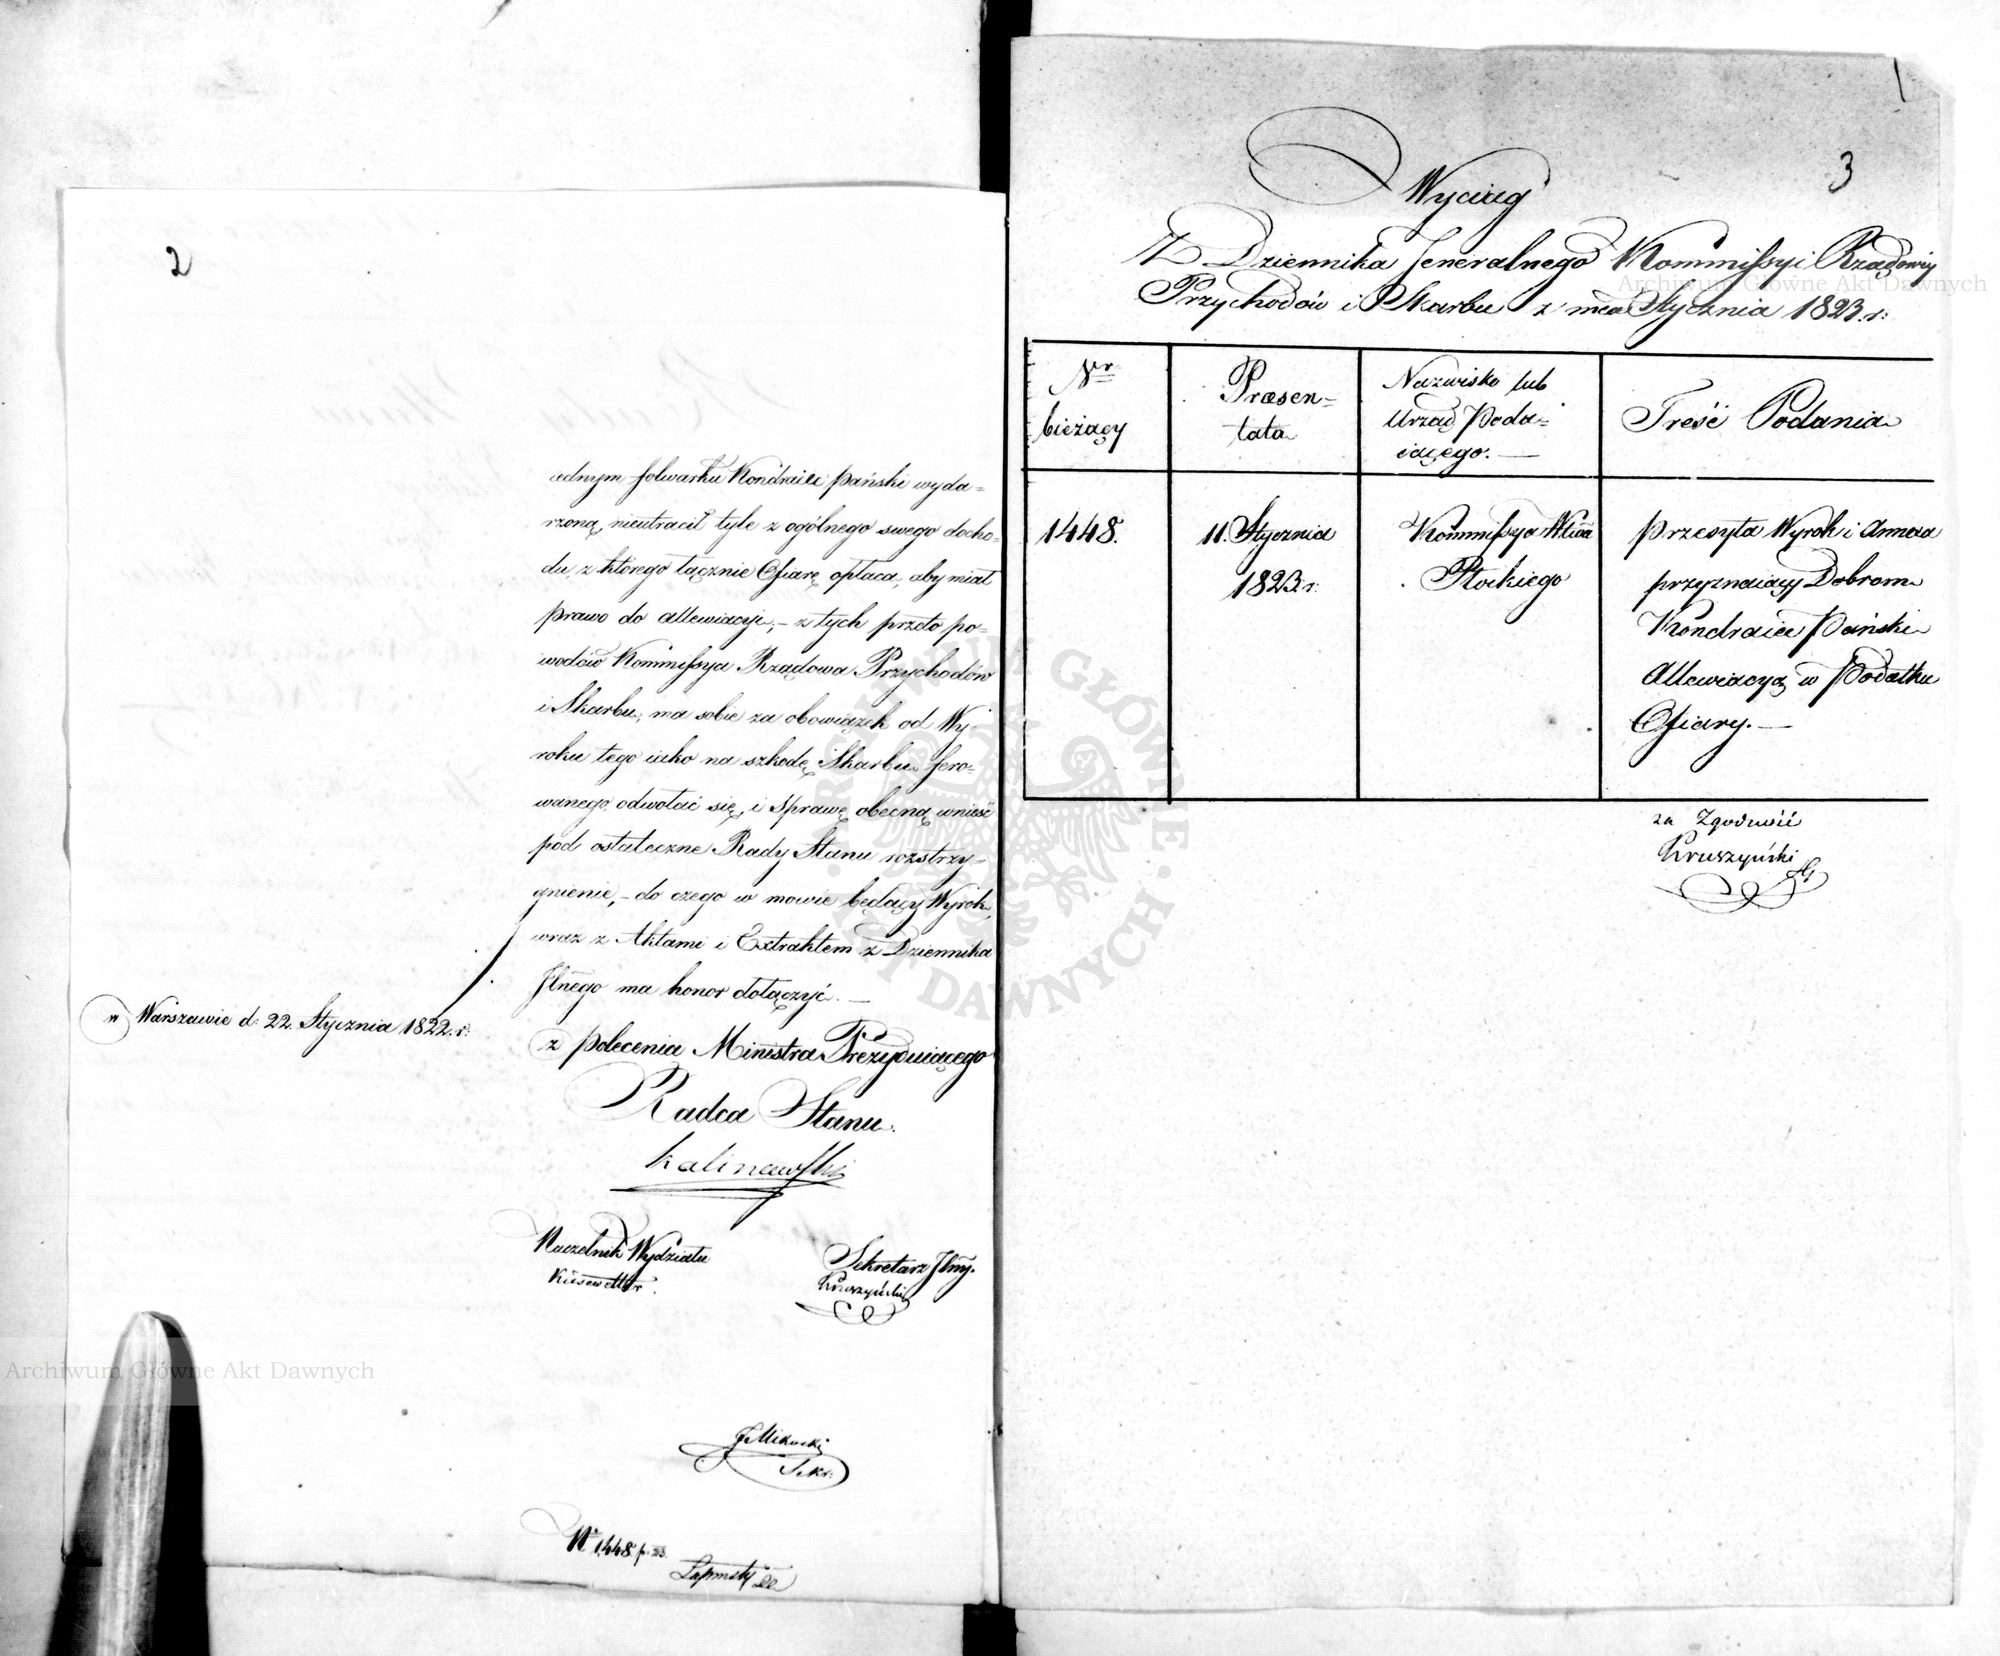 2
ednym folwarku Kondraiec pański wyda=
rzoną, nieutracił tyle z ogólnego swego docho=
du, z którego łącznie Ofiarę opłaca, aby miał
prawo do allewiacyi; – z tych przeto po=
wodów Kommissya Rządowa Przychodów
i Skarbu, ma sobie za obowiązek od Wy=
roku tego iako na szkodę Skarbu fero=
wanego, odwołać się, i Sprawę obecną wnieść
pod ostateczne Rady Stanu rozstrzy=
gnienie, – do czego w mowie będący Wyrok,
wraz z Aktami i Extraktem z Dziennika
Jlnego ma honor dołączyć. —
w Warszawie d: 22. Stycznia 1822. r:
z polecenia Ministra Prezyduiącego
Radca Stanu.
Kalinowski
Naczelnik Wydziału
Kiesewetter.
Sekretarz Jlny.
Kruszyński
Sekr:
Nr 1448 p. 23.
1
3
Wyciąg
Z Dziennika Jeneralnego Kommissyi Rządowey
Przychodów i Skarbu z mca Stycznia 1823. r:
Nr bieżący
Præsen=
tata
Nazwisko lub
Urząd Poda=
iącego. —
Treść Podania
1448.
11. Stycznia
1823. r:
Kommissya Wdztwa
Płockiego
przesyła Wyrok i Annexa
przyznaiący Dobrom
Kondraiec Pański
Allewiacyą w Podatku
Ofiary. —
za Zgodność
Kruszyński
Archiwum Główne Akt Dawnych
ARCHIWUM GŁÓWNE AKT DAWNYCH
Archiwum Główne Akt Dawnych